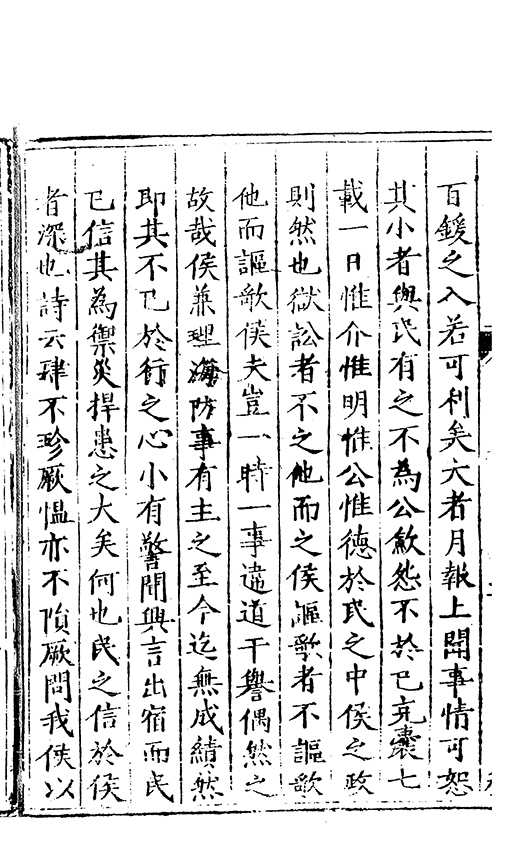 百鍰之入若可利矣大者月報上聞事情可恕
其小者與民有之不為公斂怨不於已充橐七
載一日惟介惟明惟公惟德於民之中侯之政
則然也獄訟者不之他而之侯謳歌者不謳歌
他而謳歌侯夫豈一時一事違道干譽偶然之
故哉侯兼理海防事有主之至今迄無成績然
即其不已於行之心小有警聞興言出宿而民
已信其為禦災捍患之大矣何也民之信於侯
者深也詩云肆不殄厥愠亦不隕厥問我侯以